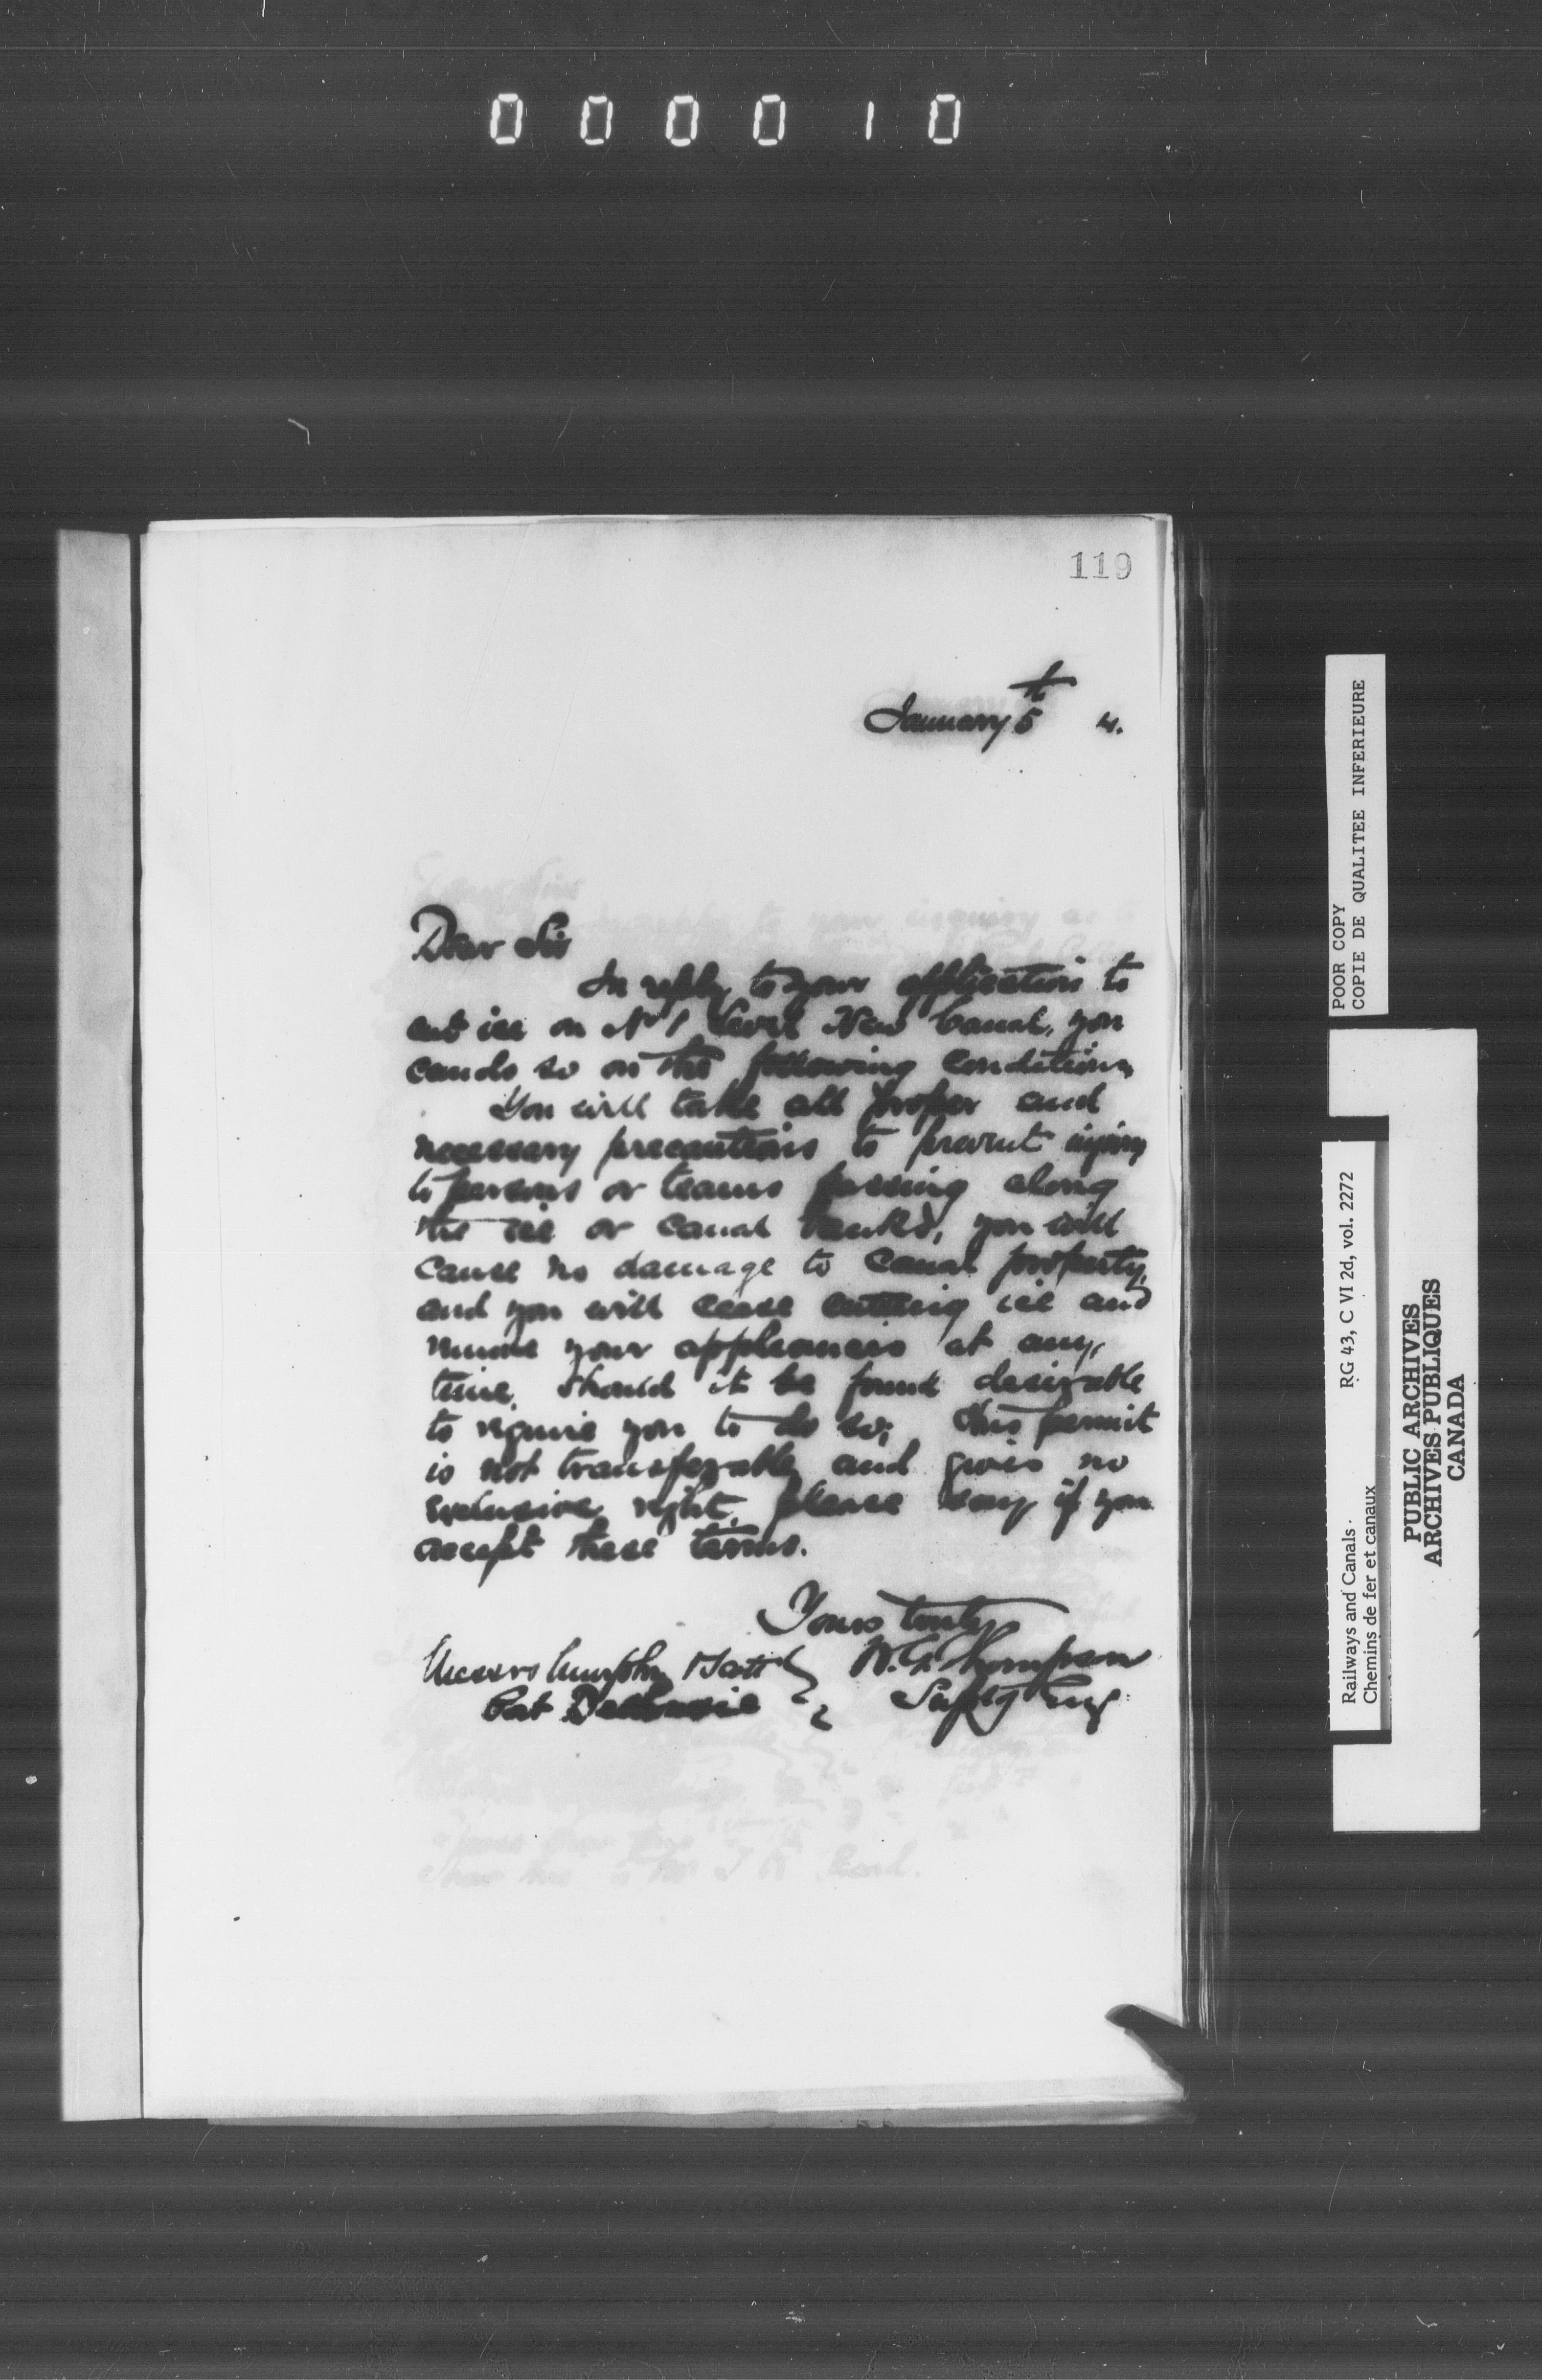 000010
119
January 5th 4.
Dear Sir
In reply to your application to
cut ice on No 1 Level New Canal, you
can do so on the following conditions,
You will take all proper and
necessary precautions to prevent injury
to persons or teams passing along
the ice or canal banks, you will
cause no damage to canal property,
and you will cease cutting ice and
remove your appliances at any
time, should it be found desirable
to require you to do so; this permit
is not transferable and gives no
exclusive right, please say if you
accept these terms.
Yours truly
W.G. Thompson
Suptg Eng
Messrs Murphy
Port Dalhousie
POOR COPY
COPIE DE QUALITEE INFERIEURE
Railways and Canals
Chemins de fer et canaux
RG 43, C VI 2d, vol. 2272
PUBLIC ARCHIVES
ARCHIVES PUBLIQUES
CANADA